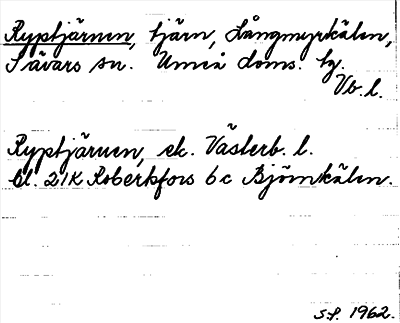 Ryptjärnen, tjärn, Långmyrkälen,
Sävars sn. Umeå doms. tg.
Vb. l.
Ryptjärnen, ek. Västerb. l.
bl. 21K Robertsfors 6c Björnkälen.
S.f. 1962.